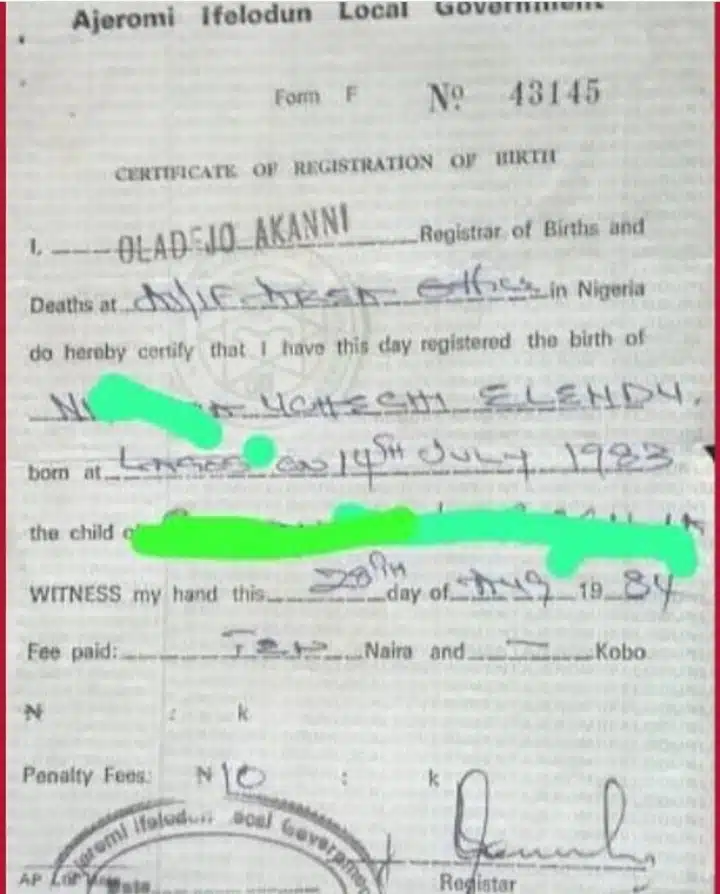 Ajeromi Ifelodun Local Government
Form F No 43145
CERTIFICATE OF REGISTRATION OF BIRTH
I, OLADEJO AKANNI Registrar of Births and
Deaths at AJ/IF AREA Office in Nigeria
do hereby certify that I have this day registered the birth of
UCHECHI ELENDU.
born at Lagos on 14TH July 1983
the child
WITNESS my hand this 28TH day of Aug 1984
Fee paid: Ten Naira and — Kobo
N : k
Penalty Fees: N10 : k
Ajeromi Ifelodun Local Government
Registar